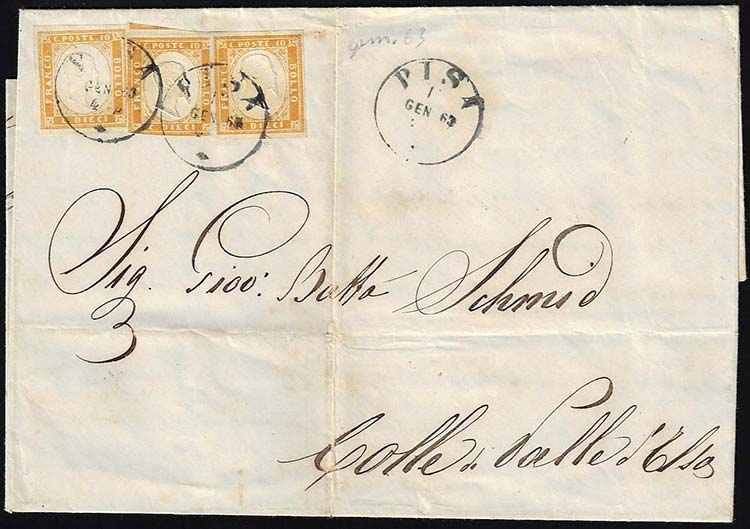 C. POSTE 10 C. POSTE 10 C. POSTE 10
FRANCO BOLLO FRANCO BOLLO FRANCO BOLLO
DIECI DIECI DIECI
genn. 63
PISA
GEN 63
PISA
1
GEN 63
Sig. Giov: Batta Schmid
3
Colle di Valle d'Elsa